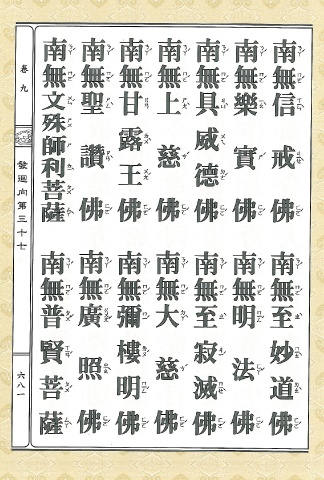 南無信戒佛
南無至妙道佛
南無樂實佛
南無明法佛
南無具威德佛
南無至寂滅佛
南無上慈佛
南無大慈佛
南無甘露王佛
南無彌樓明佛
南無聖讚佛
南無廣照佛
南無文殊師利菩薩
南無普賢菩薩
卷九
發迴向第三十七
六八一